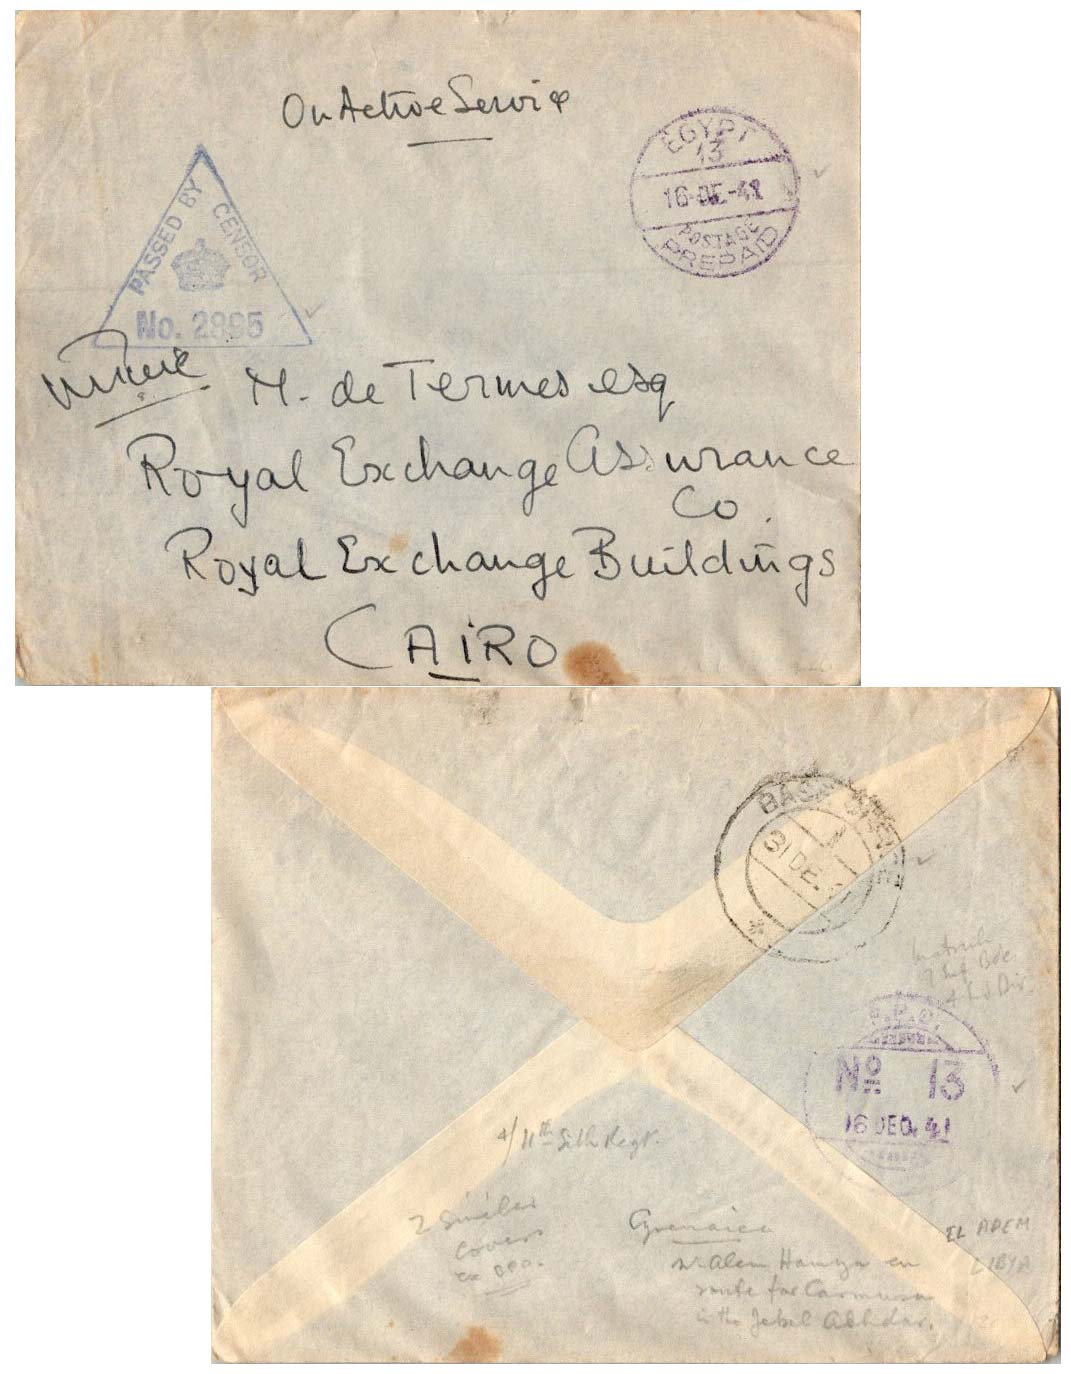 On Active Service
EGYPT
13
16-DE-41
POSTAGE
PREPAID
PASSED BY CENSOR
No. 2895
M. de Termes esq
Royal Exchange Assurance
Co.
Royal Exchange Buildings
CAIRO
BASE
31 DE.
7 Inf Bde
4 Ind Div.
F.P.O.
No 13
16 DEC. 41
4/11th Sikh Regt.
2 Similar
covers
Cyrenaica
nr Alem Hamza en
route for Carmusa
in the Jebel Akhdar.
EL ADEM
LIBYA